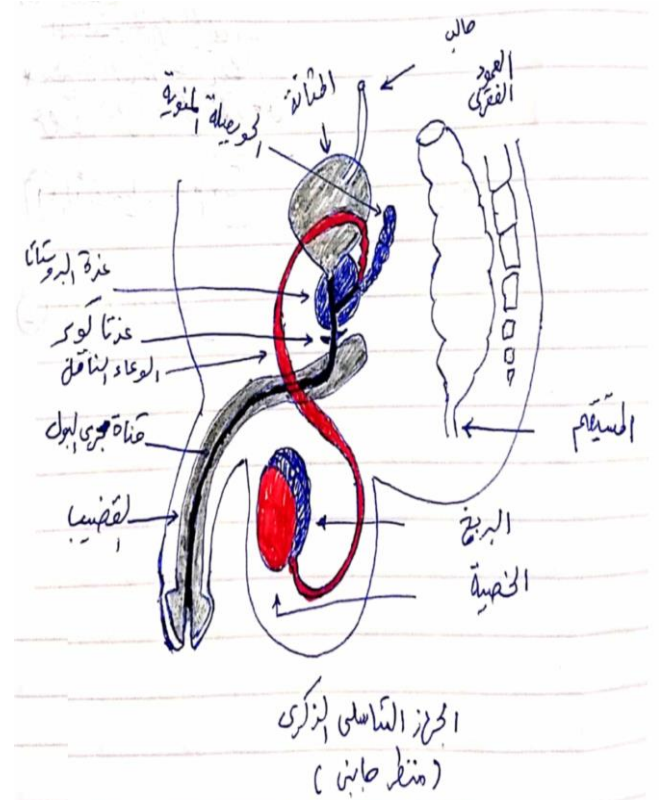 حالب
العمود
الفقرى
المثانة
الحويصلة المنوية
غدة البروستاتا
غدتا كوبر
الوعاء الناقل
قناة مجرى البول
القضيب
المستقيم
البربخ
الخصية
الجهاز التناسلى الذكرى
(منظر جانبى)